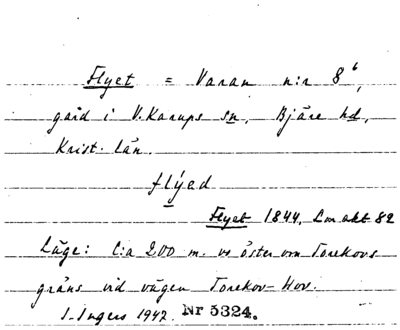 Flyet = Varan n:r 8⁶,
gård i V. Karups sn, Bjäre hd,
Krist. län.
flýed
Flyet 1844, Lm akt 82
Läge: C:a 200 m. öster om Torekovs
gräns vid vägen Torekov-Hov.
I. Ingers 1942. Nr 5324.